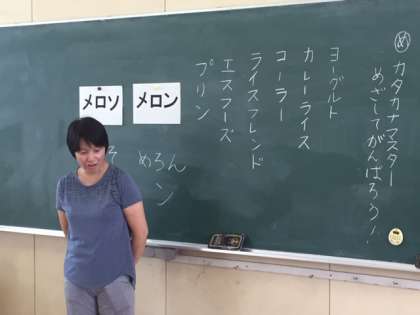 め
カタカナマスター
めざしてがんばろう！
ヨーグルト
カレーライス
コーラー
ライスフレンド
エスフーズ
プリン
メロン
メロソ
めろん
ン
そ